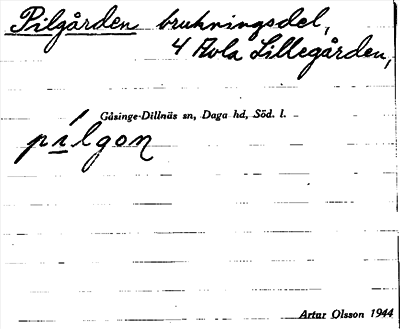 Pilgården brukningsdel,
4 Avla Lillegården,
Gåsinge-Dillnäs sn, Daga hd, Söd. l.
pílgon
Artur Olsson 1944